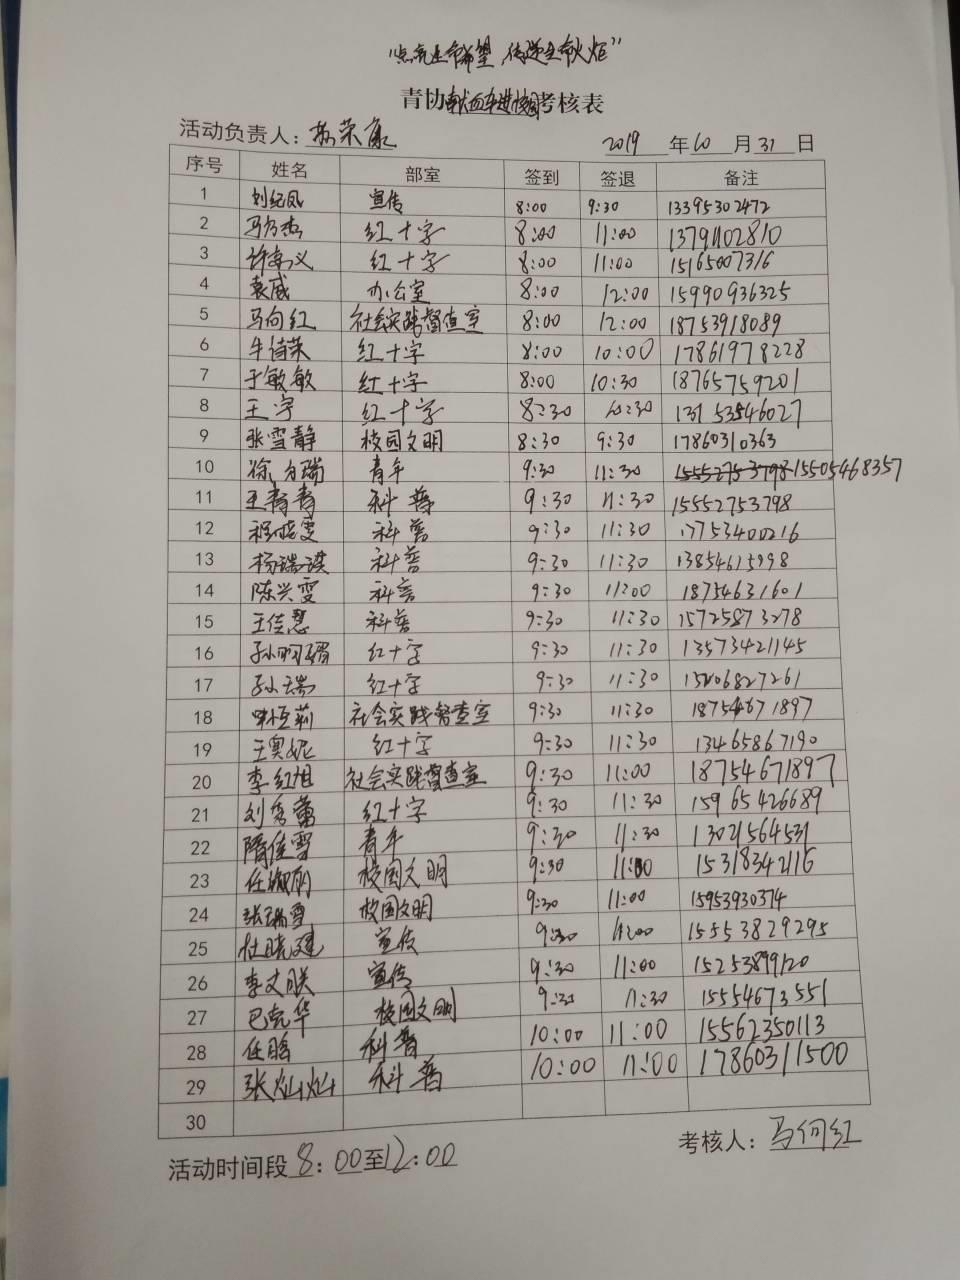 "点亮生命希望,传递生命火炬"
青协献血车进校园考核表
活动负责人: 荣康 2019 年 10 月 31 日
序号 姓名 部室 签到 签退 备注
1 刘纪凤 宣传 8:00 9:30 13395302472
2 红十字 8:00 11:00 13791102810
3 红十字 8:00 11:00 15165007316
4 袁威 办公室 8:00 12:00 15990936325
5 马向红 社会实践督查室 8:00 12:00 18753918089
6 牛倩荣 红十字 8:00 10:00 17861978228
7 于敏敏 红十字 8:00 10:30 18765759201
8 王宇 红十字 8:30 10:30
9 张雪静 校园文明 8:30 9:30 17860310363
10 徐方瑞 青年 9:30 11:30 15552753798 15505468357
11 王青青 科普 9:30 11:30 15552753798
12 程晓雯 科普 9:30 11:30 17753400216
13 杨瑞琪 科普 9:30 11:30
14 陈兴雯 科普 9:30 11:00 18754631601
15 王佳慧 科普 9:30 11:30 15725873278
16 红十字 9:30 11:30 13573421145
17 孙瑞 红十字 9:30 11:30 15206827261
18 社会实践督查室 9:30 11:30 18754671897
19 王奥妮 红十字 9:30 11:30 13465867190
20 李红旭 社会实践督查室 9:30 11:00 18754671897
21 刘秀蕾 红十字 9:30 11:30 15965426689
22 隋佳雪 青年 9:30 11:30 13021564531
23 任淑丽 校园文明 9:30 11:00 15318342116
24 张瑞雪 校园文明 9:30 11:00 15953930374
25 杜晓建 宣传 9:30 11:00 15553829295
26 李文朕 宣传 9:30 11:00 15253899120
27 巴克华 校园文明 9:30 11:30 15554673551
28 任晗 科普 10:00 11:00 15562350113
29 张灿灿 科普 10:00 11:00 17860311500
30
活动时间段 8:00至12:00 考核人: 马向红